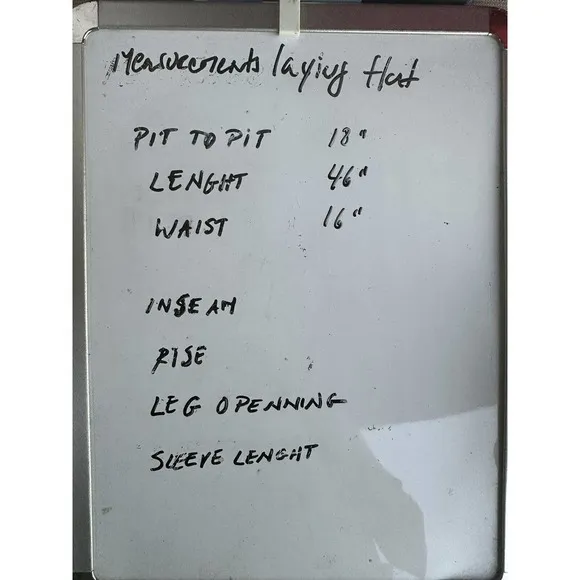 Measurements laying flat
PIT TO PIT 18"
LENGHT 46"
WAIST 16"
INSEAM
RISE
LEG OPENNING
SLEEVE LENGHT